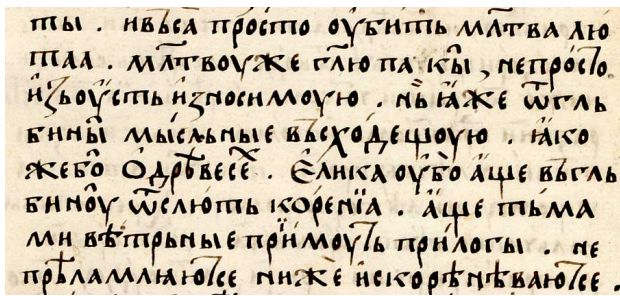 ты . ивьса просто оубить мл҃тва лю
таа . мл҃твоуже гл҃ю пакы , непросто
иꙁьоусть иꙁносимоую . нь ꙗже ѿгль
бины мысльные вьсходещоую . ꙗко
жебо ѻдрѣвесех . Єлика оубо аще вьгль
биноу ѿселють коренїа . аще тьма
ми вѣтрьные прїимоуть прилогы . не
прѣламлꙗютсе ниже искорѣнѣваютсе .